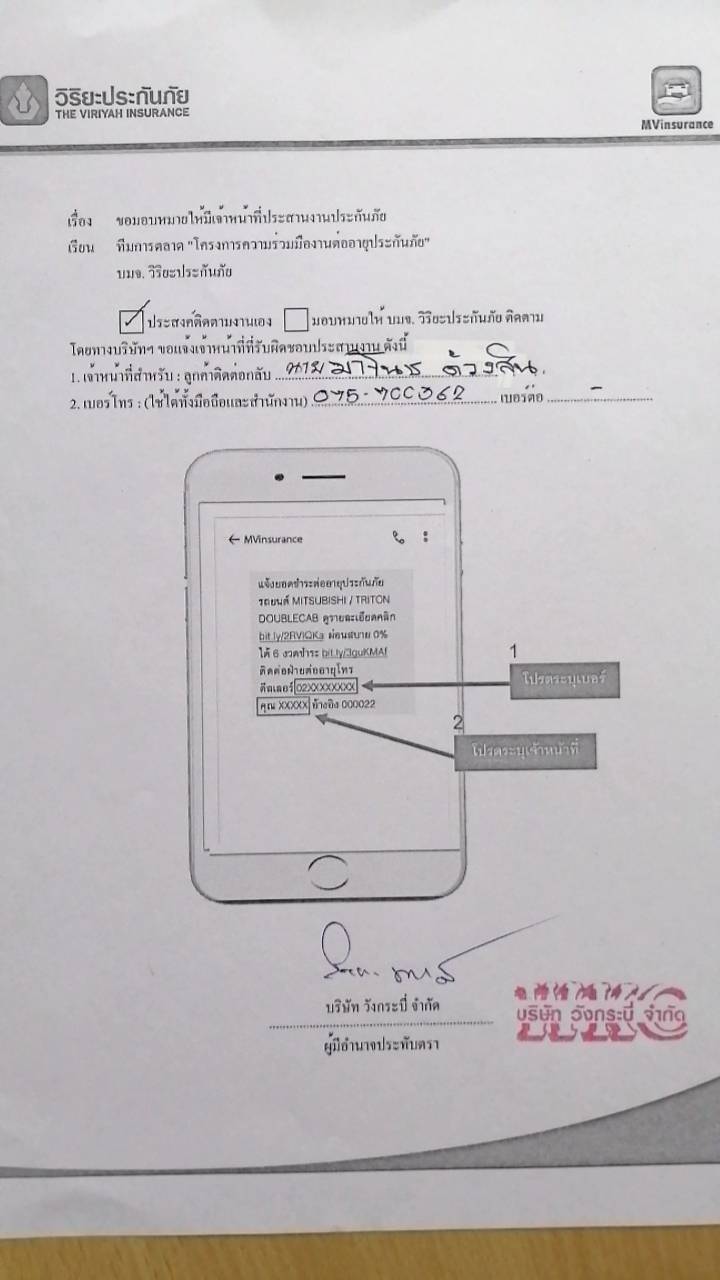 วิริยะประกันภัย
THE VIRIYAH INSURANCE
MVinsurance
เรื่อง ขอมอบหมายให้มีเจ้าหน้าที่ประสานงานประกันภัย
เรียน ทีมการตลาด "โครงการความร่วมมืองานต่ออายุประกันภัย"
บมจ. วิริยะประกันภัย
ประสงค์ติดตามงานเอง มอบหมายให้ บมจ. วิริยะประกันภัย ติดตาม
โดยทางบริษัทฯ ขอแจ้งเจ้าหน้าที่ที่รับผิดชอบประสานงาน ดังนี้
1. เจ้าหน้าที่สำหรับ : ลูกค้าติดต่อกลับ นาย
2. เบอร์โทร : (ใช้ได้ทั้งมือถือและสำนักงาน) 075-700362 เบอร์ต่อ -
← MVinsurance
แจ้งยอดชำระต่ออายุประกันภัย
รถยนต์ MITSUBISHI / TRITON
DOUBLECAB ดูรายละเอียดคลิก
bit.ly/2RVIQKa ผ่อนสบาย 0%
ได้ 6 งวดชำระ bit.ly/3guKMAf
ติดต่อฝ่ายต่ออายุโทร
ดีลเลอร์ 02XXXXXXXX
คุณ XXXXX อ้างอิง 000022
1
โปรดระบุเบอร์
2
โปรดระบุเจ้าหน้าที่
บริษัท วังกระบี่ จำกัด
ผู้มีอำนาจประทับตรา
บริษัท วังกระบี่ จำกัด